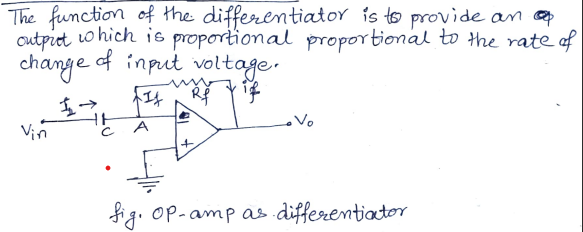 The function of the differentiator is to provide an op
output which is proportional proportional to the rate of
change of input voltage.
I₁ → If Rf if
Vin C A - + Vo
fig. OP-amp as differentiator